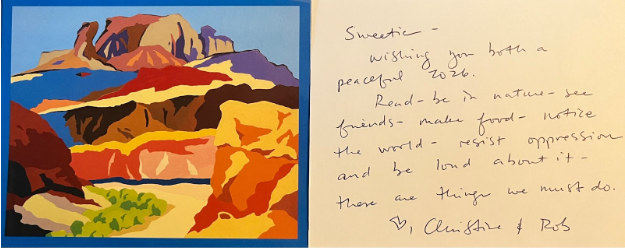 Sweetie -
wishing you both a
peaceful 2026.
Read - be in nature - see
friends - make food - notice
the world - resist oppression
and be loud about it -
these are things we must do.
♡, Christine & Rob